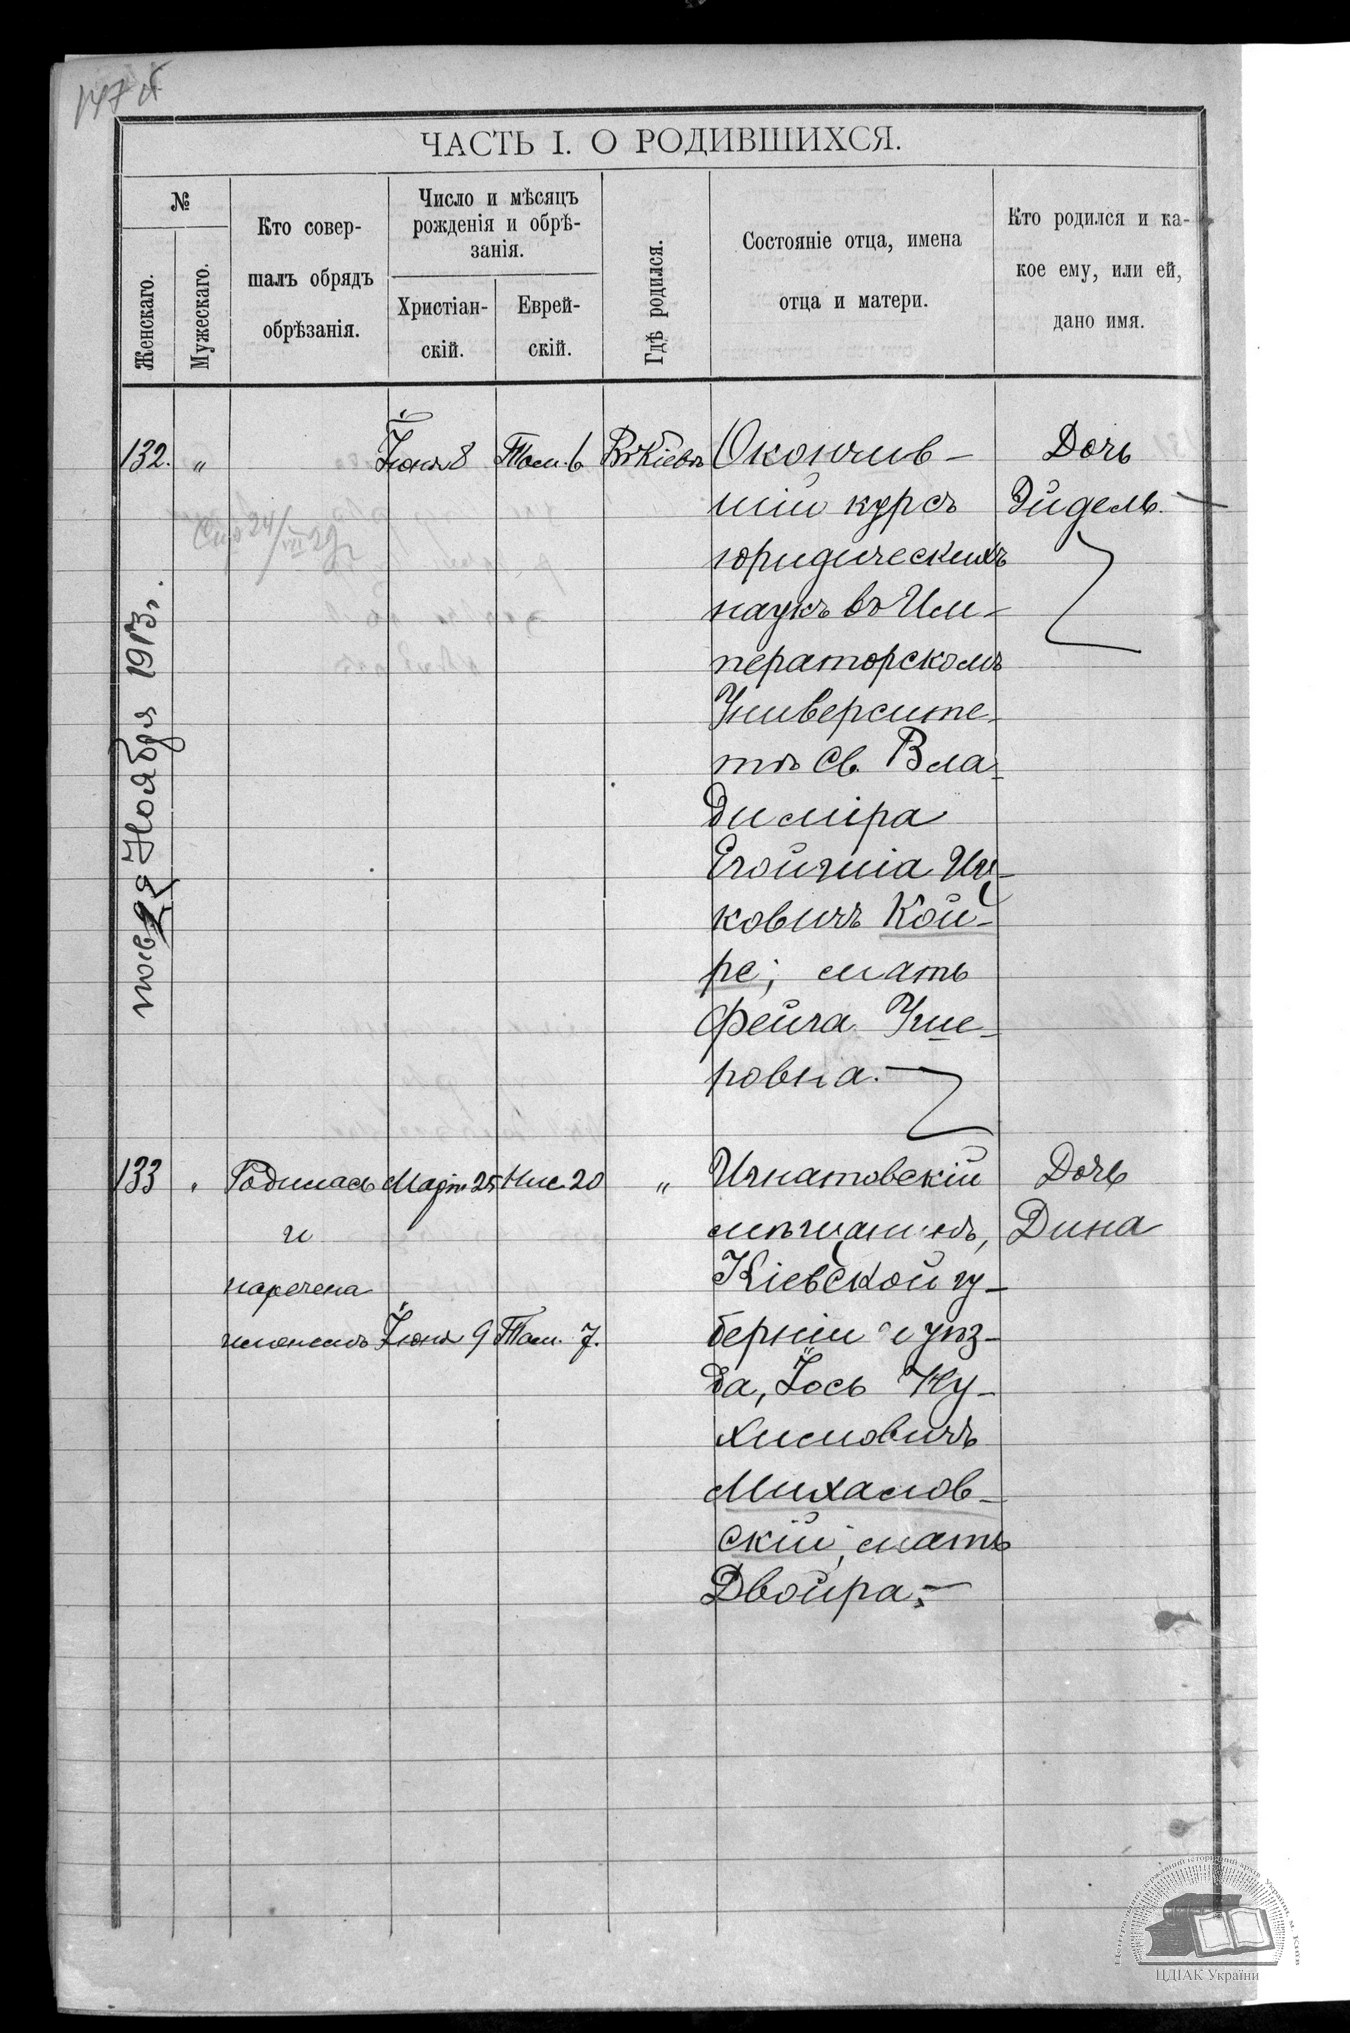 147 об
ЧАСТЬ I. О РОДИВШИХСЯ.
№
Женскаго.
Мужескаго.
Кто совер-
шалъ обрядъ
обрѣзанія.
Число и мѣсяцъ
рожденія и обрѣ-
занія.
Христіан-
скій.
Еврей-
скій.
Гдѣ родился.
Состояніе отца, имена
отца и матери.
Кто родился и ка-
кое ему, или ей,
дано имя.
132. „ Іюня 8 Там. 6 Въ Кіевѣ
Окончив-
шій курсъ
юридическихъ
наукъ въ Им-
ператорскомъ
Университе-
тѣ Св. Вла-
диміра
ковичъ Кой-
ре; мать
Фейга Уше-
ровна.
Дочь
Эйдель.
24/VII 29
Ноября 1913 г.
133 „ Родилась
и
наречена
именемъ
Март 25 Нис. 20 „
Іюня 9 Там. 7.
Игнатовскій
мѣщанинъ,
Кіевской гу-
берніи и уѣз-
да, Іось Ну-
химовичъ
Михайлов-
скій, мать
Двойра.
Дочь
Дина
ЦДІАК України